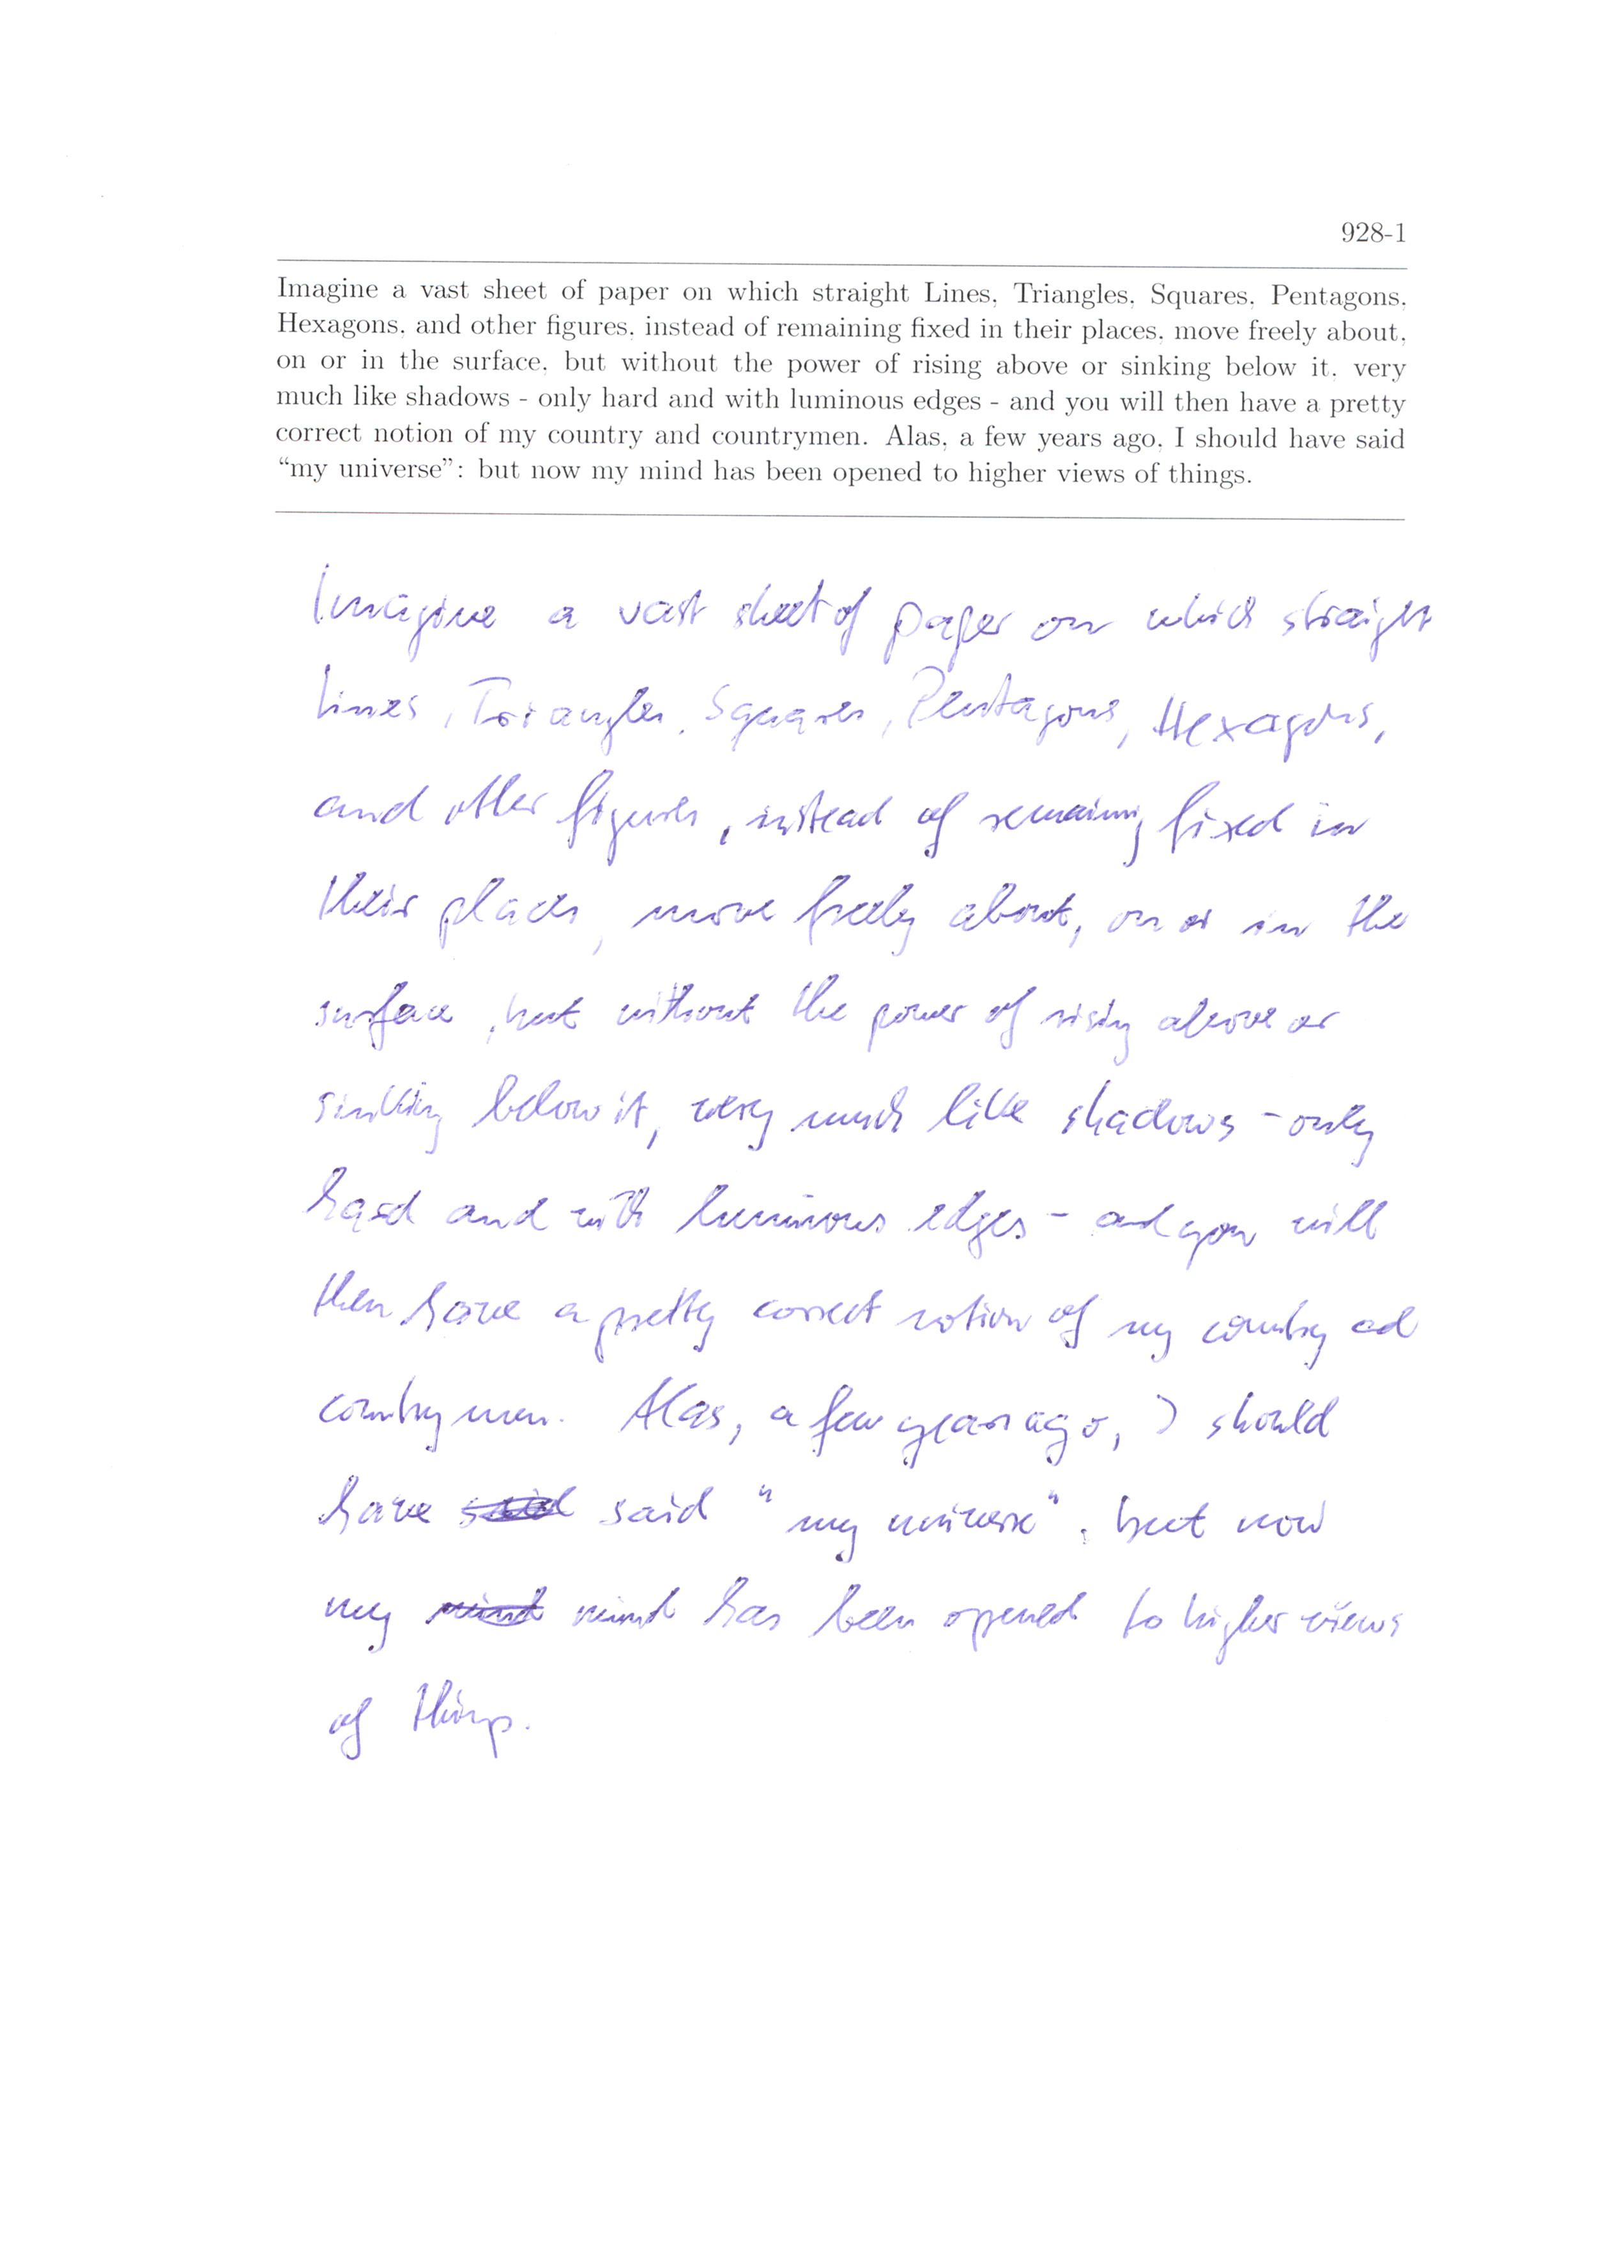 928-1
Imagine a vast sheet of paper on which straight Lines, Triangles, Squares, Pentagons,
Hexagons, and other figures, instead of remaining fixed in their places, move freely about,
on or in the surface, but without the power of rising above or sinking below it, very
much like shadows - only hard and with luminous edges - and you will then have a pretty
correct notion of my country and countrymen. Alas, a few years ago, I should have said
“my universe”: but now my mind has been opened to higher views of things.
Imagine a vast sheet of paper on which straight
Lines, Triangles, Squares, Pentagons, Hexagons,
and other figures, instead of remaining fixed in
their places, move freely about, on or in the
surface, but without the power of rising above or
sinking below it, very much like shadows - only
hard and with luminous edges - and you will
then have a pretty correct notion of my country ad
countrymen. Alas, a few years ago, I should
have said said "my universe": but now
my mind mind has been opened to higher views
of things.